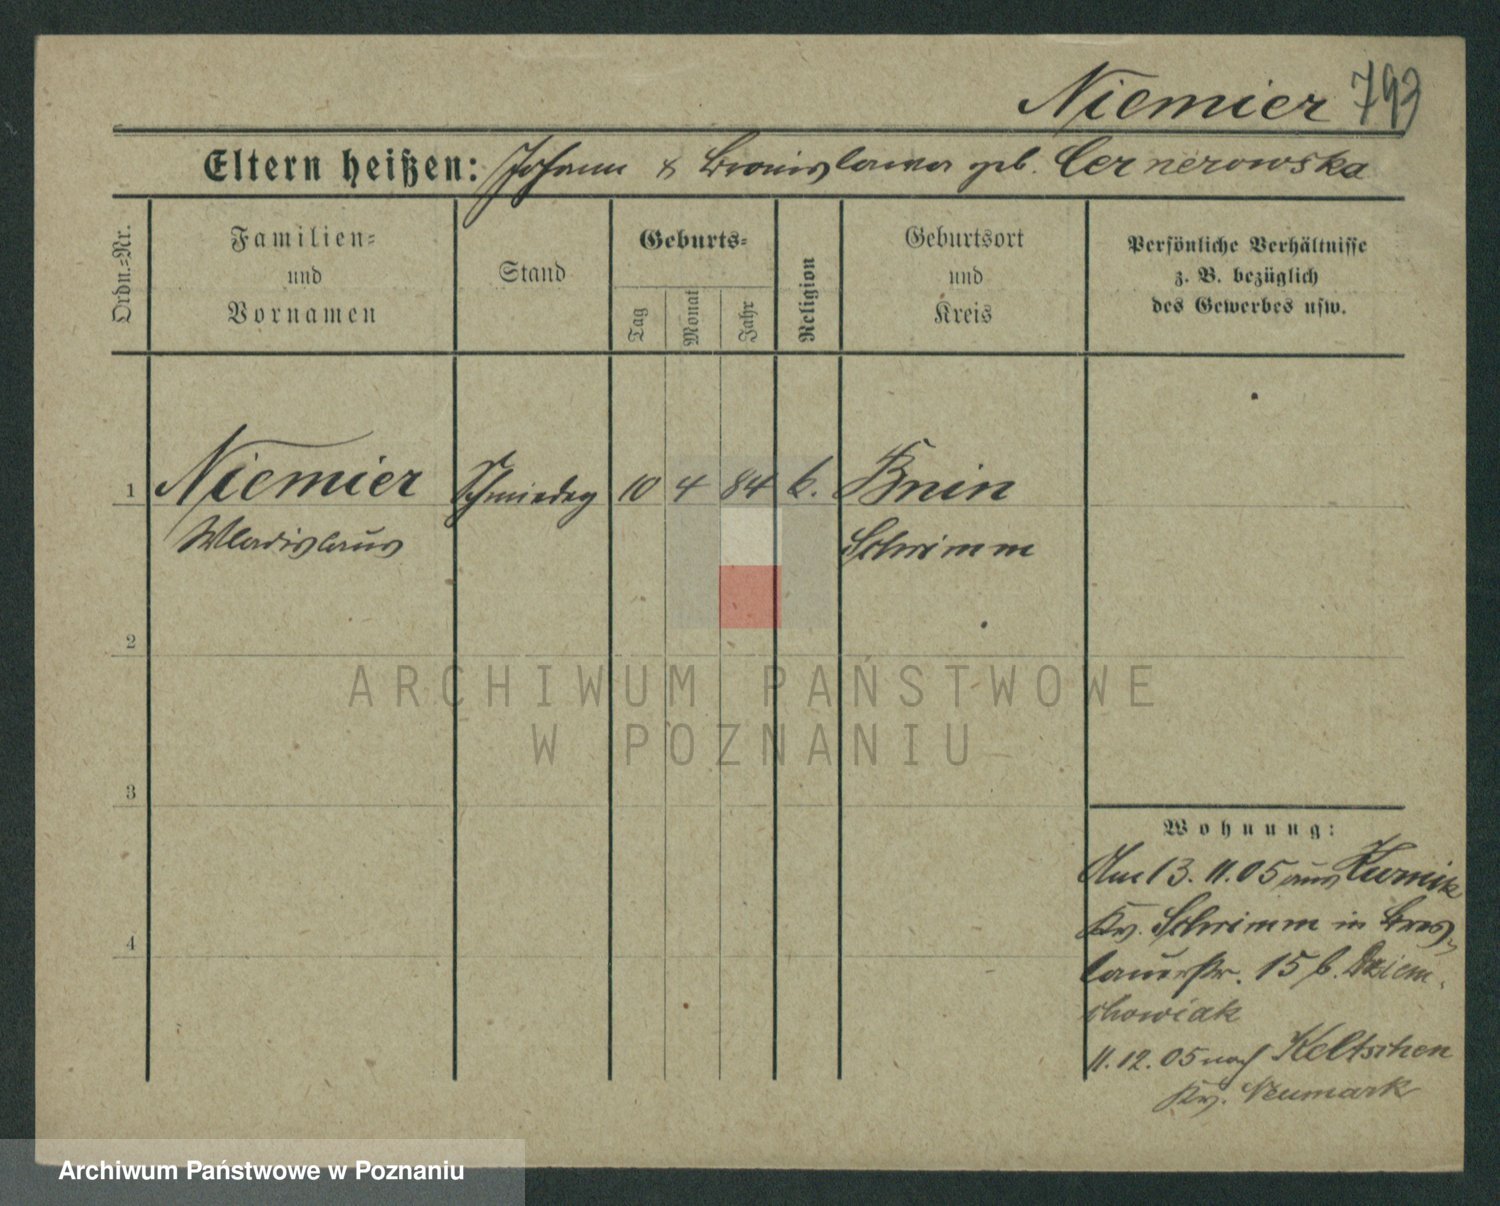 Niemier 793
Eltern heißen: Johann & Bronislawa geb. Cernerowska
Ordn.-Nr.
Familien-
und
Vornamen
Stand
Geburts-
Tag
Monat
Jahr
Religion
Geburtsort
und
Kreis
Persönliche Verhältnisse
z. B. bezüglich
des Gewerbes usw.
1 Niemier Schmiedeg 10 4 84 k. Bnin
Wladislaus Schrimm
2
3
4
Wohnung:
Am 13. 11. 05 aus Kurnik
Kr. Schrimm in Bres-
lauerstr. 15 b. Dziem-
chowiak
11. 12. 05 nach Keltschen
Kr. Neumark
ARCHIWUM PAŃSTWOWE
W POZNANIU
Archiwum Państwowe w Poznaniu